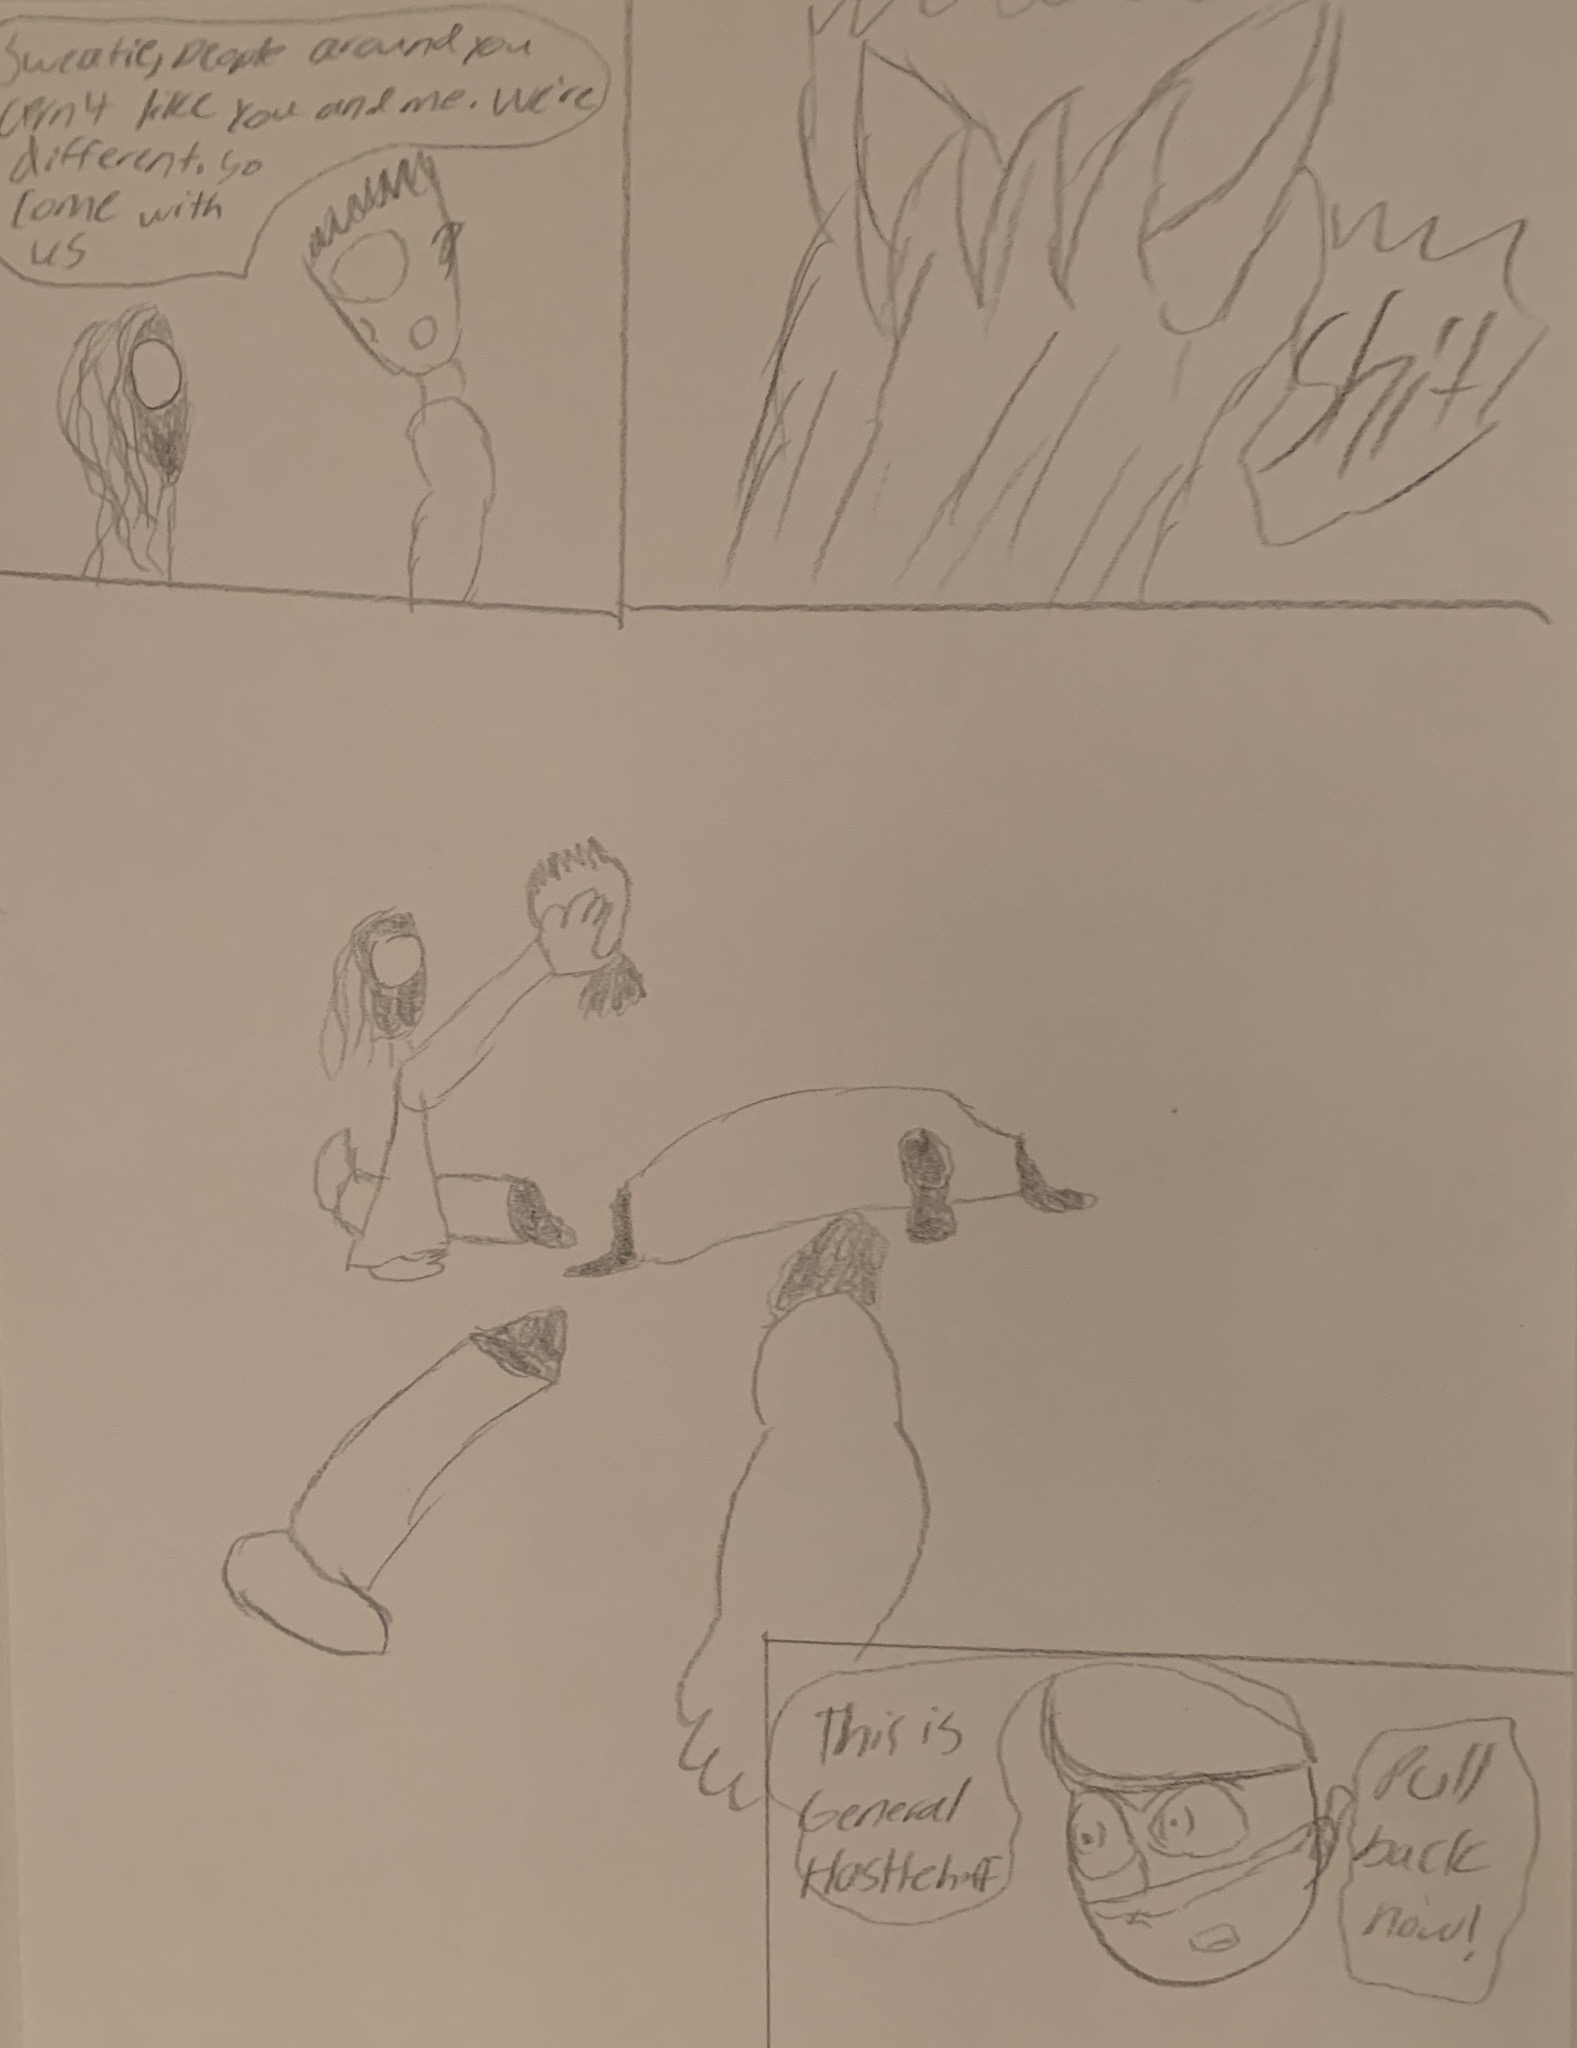 Sweatie, people around you
ain't like you and me. We're
different. so
come with
us
Shit!
This is
General
Pull
back
now!